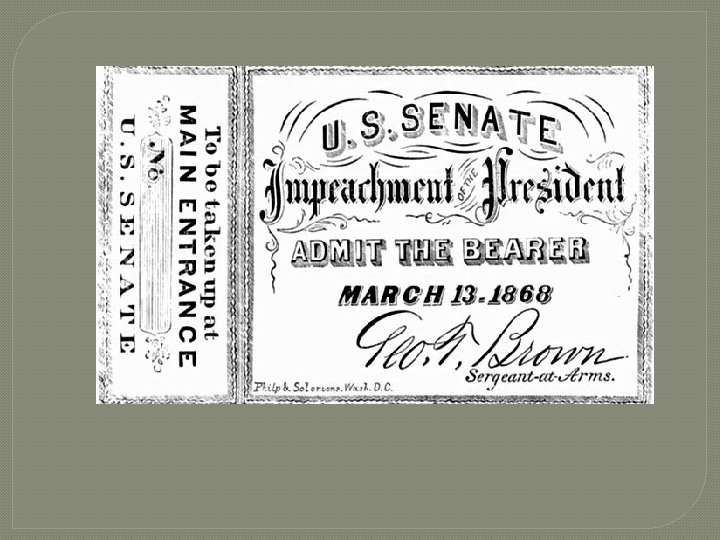 To be taken up at
MAIN ENTRANCE
No.
U.S. SENATE
U.S. SENATE
Impeachment OF THE President
ADMIT THE BEARER
MARCH 13.1868
Geo. T. Brown
Sergeant-at-Arms.
Philp & Solomons. Wash. D.C.